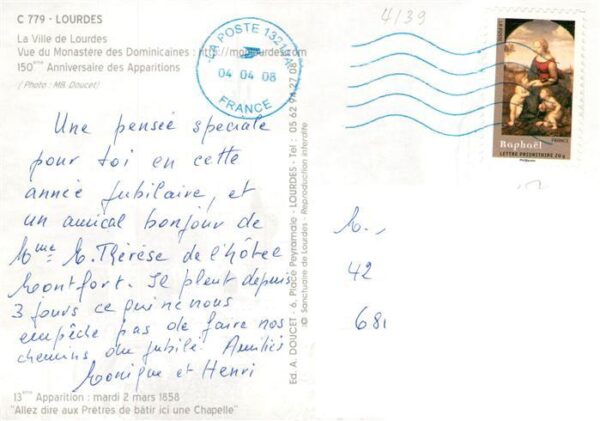 C 779 - LOURDES
La Ville de Lourdes
Vue du Monastère des Dominicaines :
150ème Anniversaire des Apparitions
( Photo : MB. Doucet)
LA POSTE 13216A
04 04 08
FRANCE
4/39
Raphaël
FRANCE
LETTRE PRIORITAIRE 20g
Une pensée spéciale
pour toi en cette
année jubilaire, et
un amical bonjour de
Mme M. Thérèse de l'hôtel
Montfort. Il pleut depuis
3 jours ce qui ne nous
empêche pas de faire nos
chemins du jubilé. Amitiés
Monique et Henri
Ed. A. DOUCET - 6, Place Peyramale - LOURDES - Tél : 05 62 94 27 08
© Sanctuaire de Lourdes - Reproduction interdite
M.,
42
681
13ème Apparition : mardi 2 mars 1858
"Allez dire aux Prêtres de bâtir ici une Chapelle"